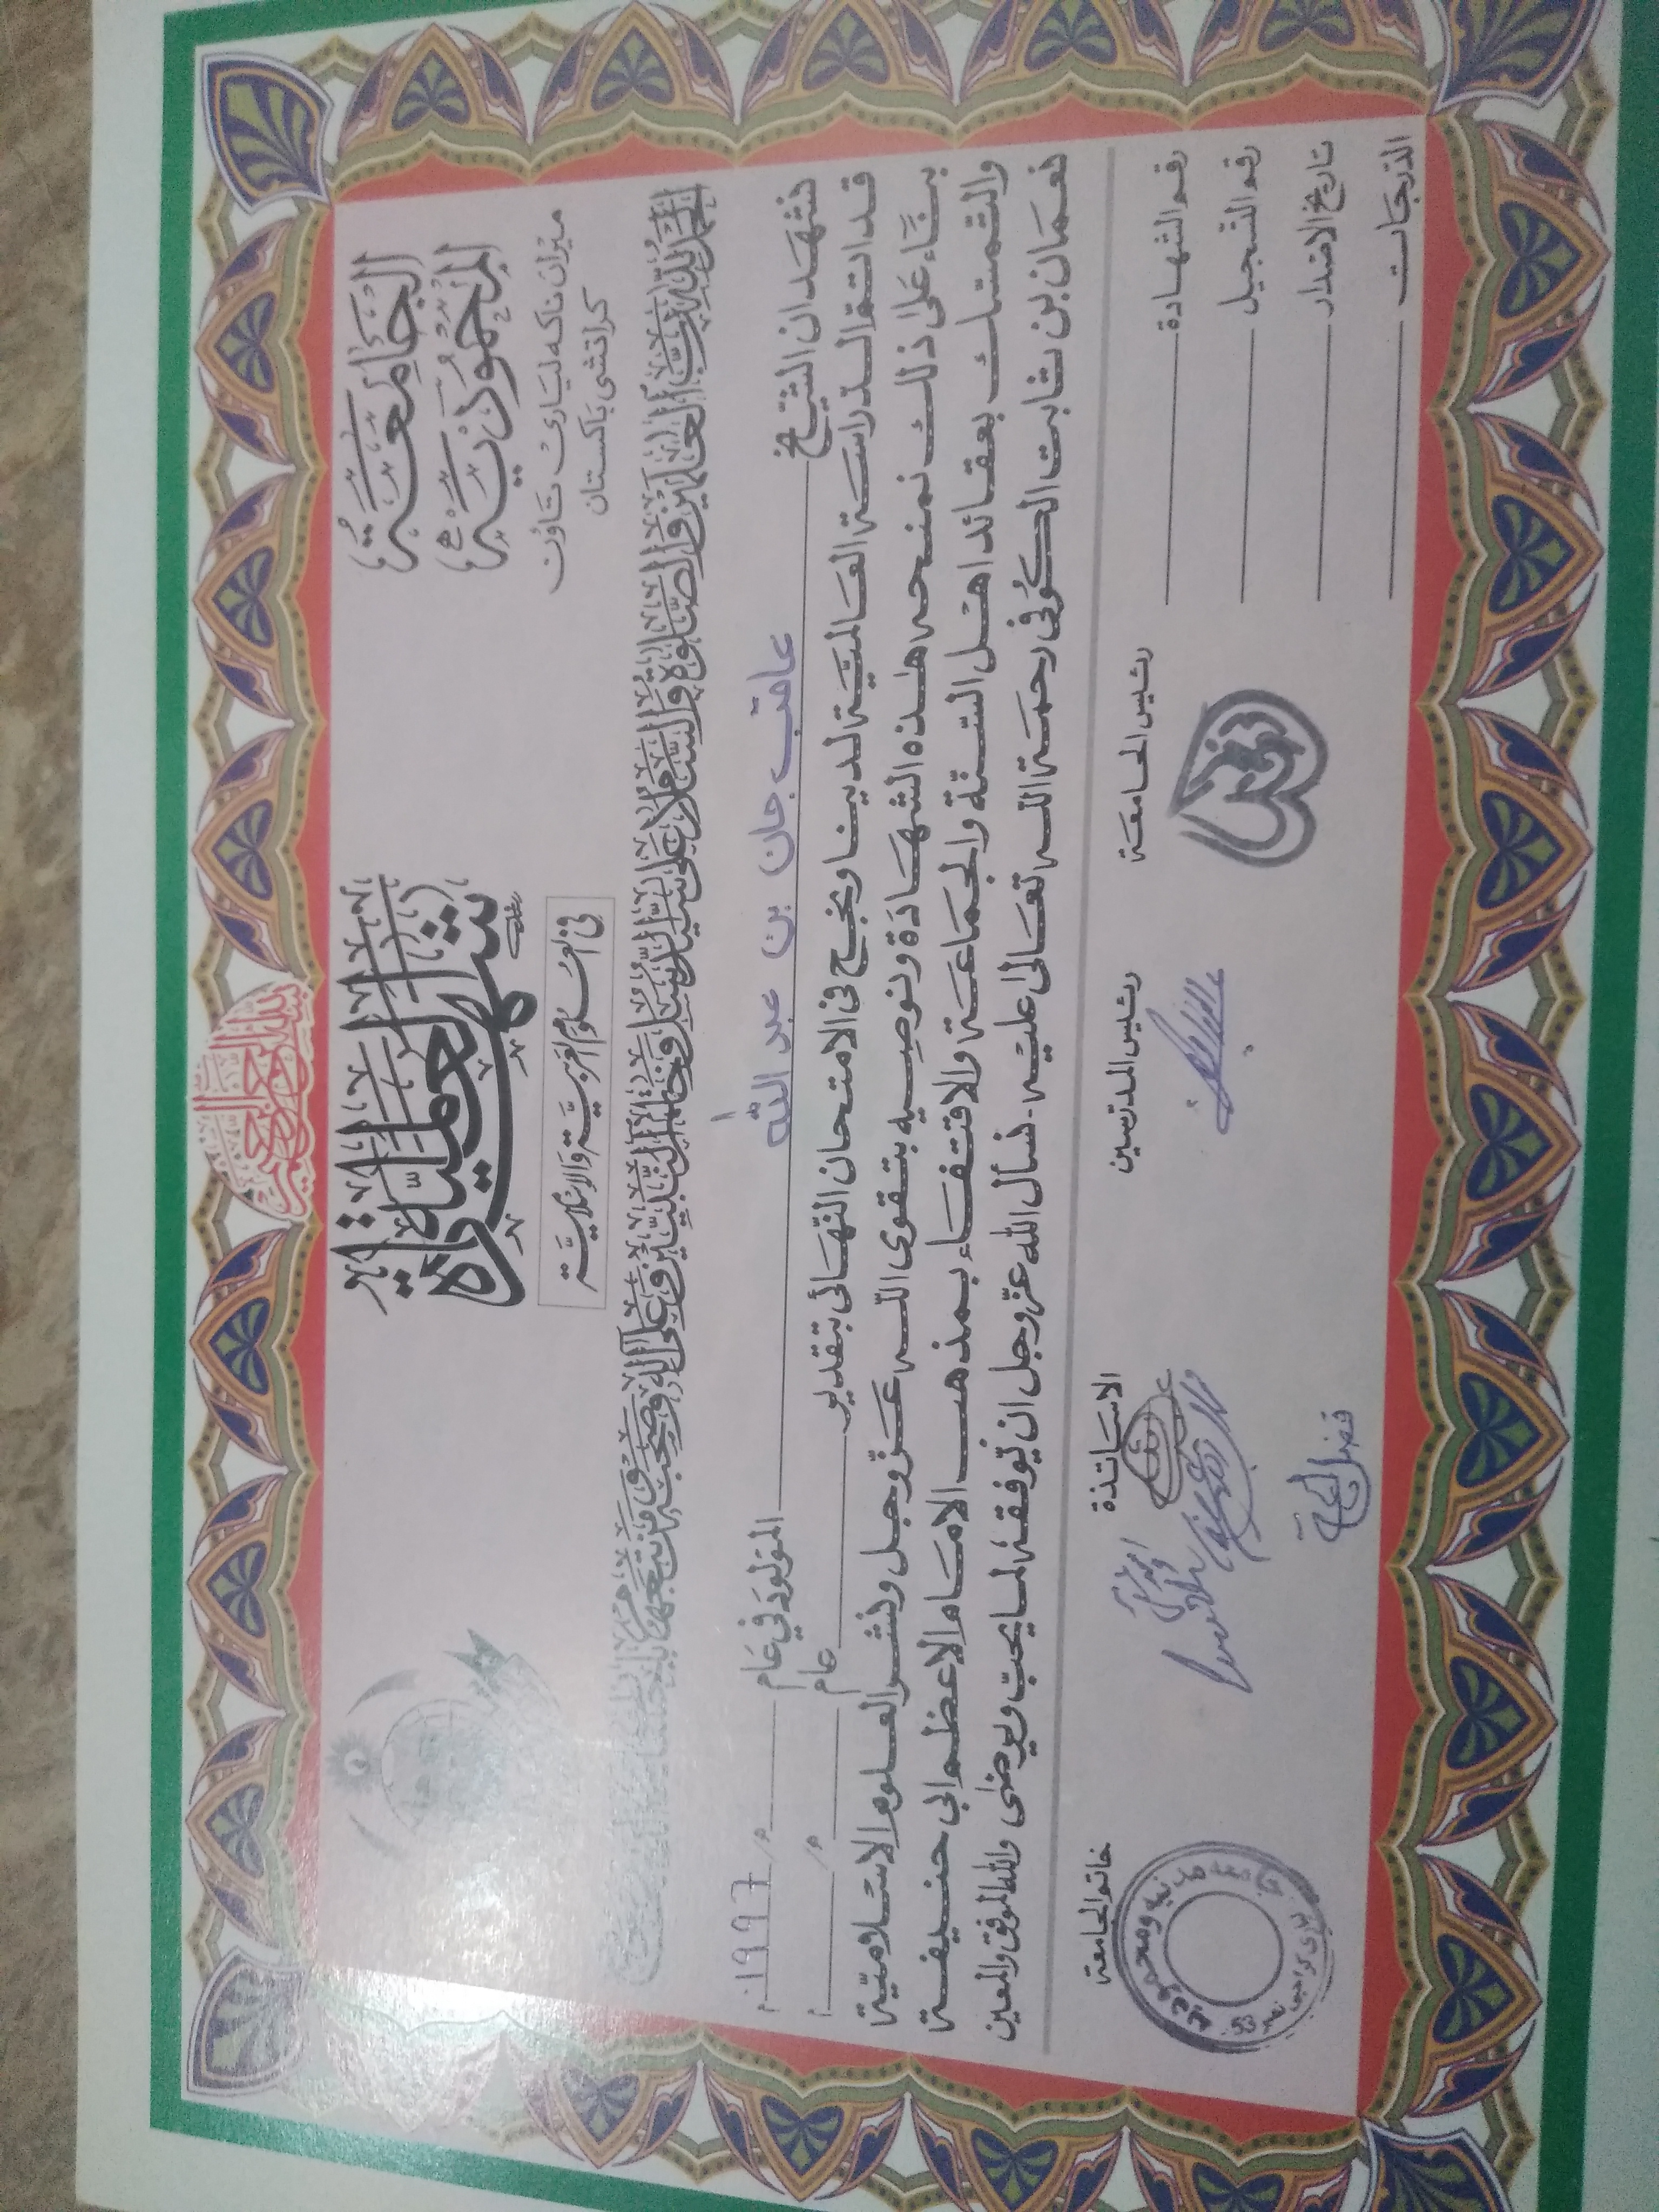 بسم الله الرحمن الرحيم
الجامعة
المحمودية
ميران ناكه ليارى تاؤن
كراتشى باكستان
شهادة العالمية
فى العلوم العربية والاسلامية
الحمد لله رب العلمين والصلوة والسلام على سيد الرسل وخاتم النبيين وعلى اله وصحبه ومن تبعهم
نشهد ان الشيخ عاقب جان بن عبد الله المولود في عام ١٩٩٦ م
قد اتم الدراسة العالمية لدينا ونجح فى الامتحان النهائى بتقدير عام
بناء على ذلك نمنحه هذه الشهادة ونوصيه بتقوى الله عز وجل ونشر العلوم الاسلامية
والتمسك بعقائد اهل السنة والجماعة والاقتفاء بمذهب الامام الاعظم ابى حنيفة
نعمان بن ثابت الكوفى رحمة الله تعالى عليه۔ نسأل الله عز وجل ان يوفقه لما يحب ويرضى والله الموفق والمعين
رقم الشهادة
رقم التسجيل
تاريخ الاصدار
الدرجات
رئيس الجامعة
رئيس المدرسين
الاساتذة
فضل الحق
خاتم الجامعة
جامعه مدنيه ومحموديه